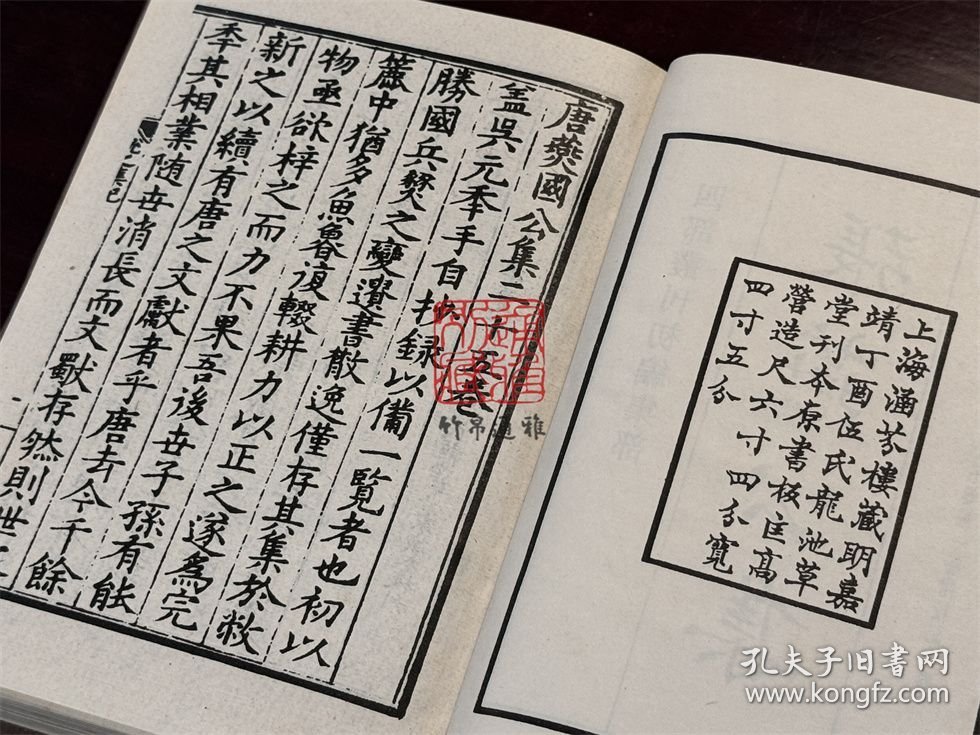 上海涵芬樓藏明嘉
靖丁酉伍氏龍池草
堂刊本原書板匡高
營造尺六寸四分寬
四寸五分
唐燕國公集二十五卷
盖吳元季手自抄録以備一覽者也初以
勝國兵燹之變遺書散逸僅存其集於敝
簏中猶多魚魯復輟耕力以正之遂為完
物亟欲梓之而力不果吾後世子孫有能
新之以續有唐之文獻者乎唐去今千餘
季其相業隨世消長而文獻存然則世
孔夫子旧书网
www.kongfz.com